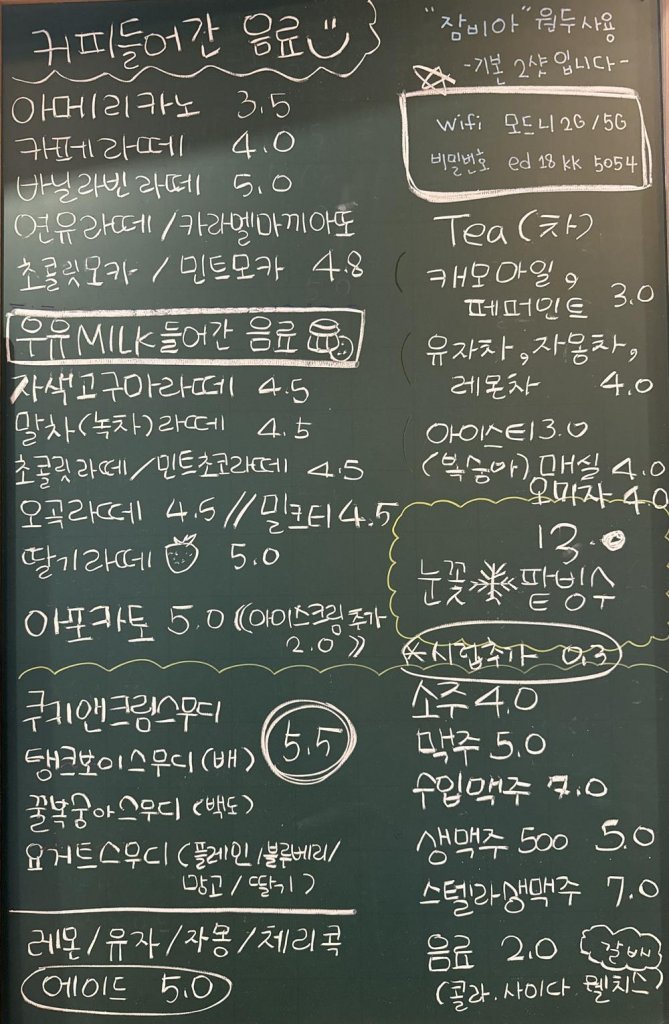 커피들어간 음료
아메리카노 3.5
카페라떼 4.0
바닐라빈라떼 5.0
연유라떼/카라멜마끼아또
초콜릿모카/민트모카 4.8
우유MILK들어간 음료
자색고구마라떼 4.5
말차(녹차)라떼 4.5
초콜릿라떼/민트초코라떼 4.5
오곡라떼 4.5//밀크티4.5
딸기라떼 5.0
아포카토 5.0 《(아이스크림추가
2.0》
쿠키앤크림스무디
탱크보이스무디(배)
5.5
꿀복숭아스무디(백도)
요거트스무디(플레인/블루베리/
망고/딸기)
레몬/유자/자몽/체리콕
에이드 5.0
"잠비아"원두사용
-기본 2샷입니다-
Wifi 모드니2G/5G
비밀번호 ed18kk5054
Tea(차)
캐모마일,
페퍼민트 3.0
유자차,자몽차,
레몬차 4.0
아이스티3.0
(복숭아) 매실 4.0
오미자 4.0
13.0
눈꽃 팥빙수
*시럽추가 0.3
소주 4.0
맥주 5.0
수입맥주 7.0
생맥주 500 5.0
스텔라생맥주 7.0
음료 2.0 갈배
(콜라.사이다 웰치스)